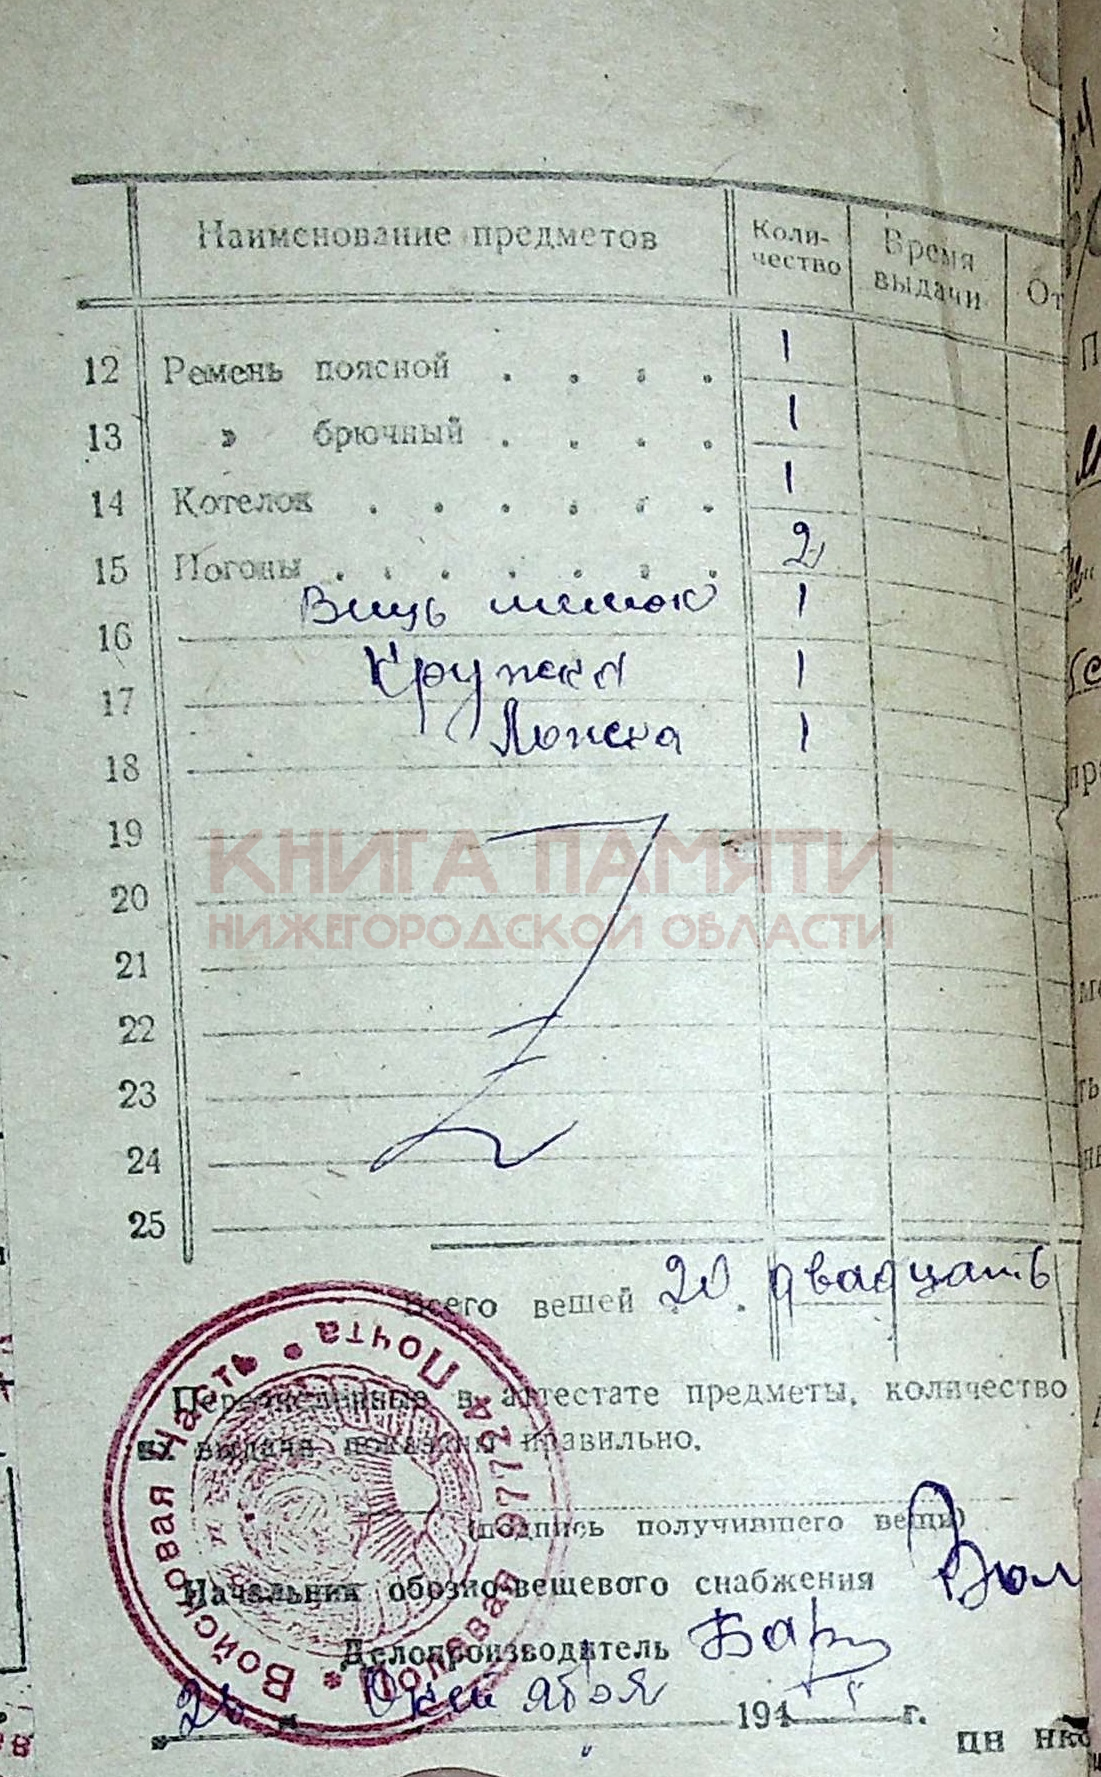 Наименование предметов
Коли-
чество
Время
выдачи
От
12 Ремень поясной . . . . 1
13 » брючный . . . . 1
14 Котелок . . . . . . 1
15 Погоны . . . . . . . 2
16 Вещь мешок 1
17 Кружка 1
18 Ложка 1
19
КНИГА ПАМЯТИ
20
НИЖЕГОРОДСКОЙ ОБЛАСТИ
21
22
23
24
25
Всего вещей 20. двадцать
Перечисленные в аттестате предметы, количество
их выдачи показаны правильно.
(подпись получившего вещи)
Начальник обозно-вещевого снабжения
Делопроизводитель
Октября 194 г.
Войсковая Часть • Полевая Почта